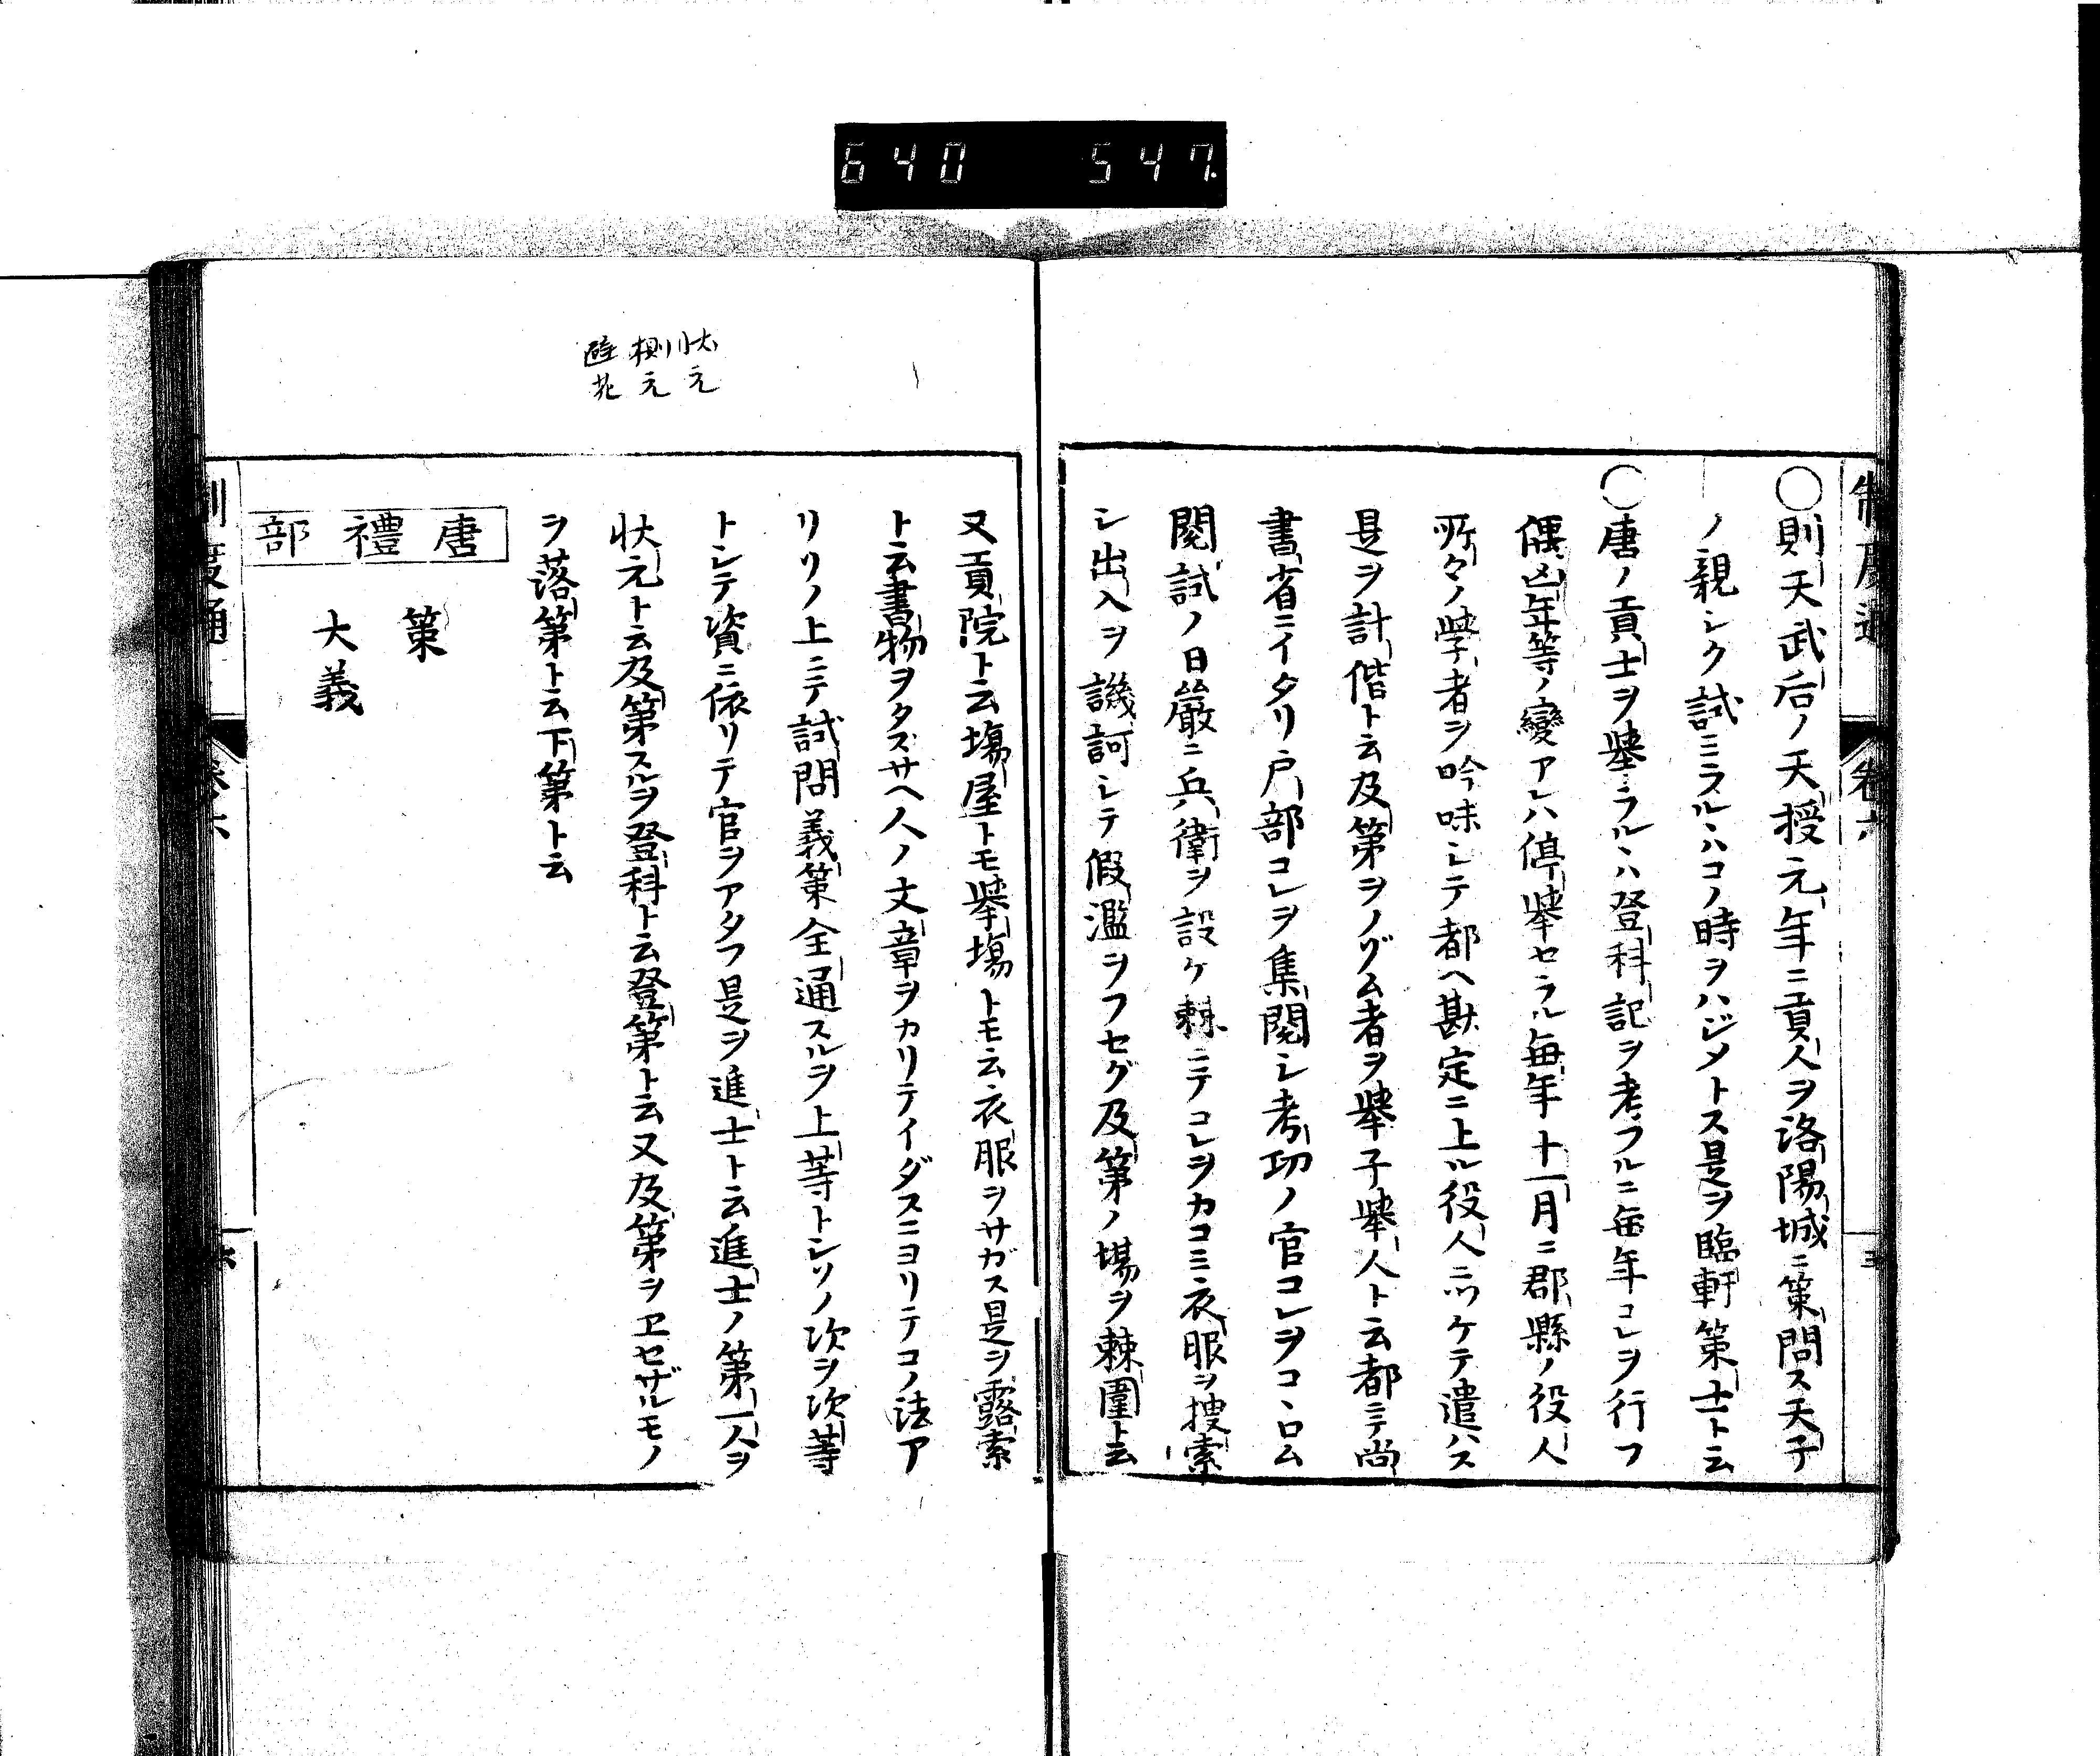 640 547
制度通 卷六
〇則天武后ノ天授元年ニ貢人ヲ洛陽城ニ策問ス天子
ノ親シク試ミラルヽハコノ時ヲハジメトス是ヲ臨軒策士ト云
〇唐ノ貢士ヲ擧ラルヽハ登科記ヲ考フルニ毎年コレヲ行フ
偶凶年等ノ變アレハ停擧セラル毎年十一月ニ郡縣ノ役人
所々ノ學者ヲ吟味シテ都ヘ勘定ニ上ル役人ニツケテ遣ハス
是ヲ計偕ト云及第ヲノゾム者ヲ擧子擧人ト云都ニテ尚
書省ニイタリ戸部コレヲ集閲シ考功ノ官コレヲコヽロム
閲試ノ日嚴ニ兵衛ヲ設ケ棘ニテコレヲカコミ衣服ヲ捜索
シ出入ヲ譏訶シテ假濫ヲフセグ及第ノ場ヲ棘圍ト云
又貢院ト云塲屋トモ擧塲トモ云衣服ヲサガス是ヲ露索
ト云書物ヲタズサヘ人ノ文章ヲカリテイダスニヨリテコノ法ア
リソノ上ニテ試問義策全通スルヲ上等トシソノ次ヲ次等
トシテ資ニ依リテ官ヲアタフ是ヲ進士ト云進士ノ第一人ヲ
状元ト云及第スルヲ登科ト云登第ト云又及第ヲヱセザルモノ
ヲ落第ト云下第ト云
唐禮部
策
大義
状元
制度通 卷六 六